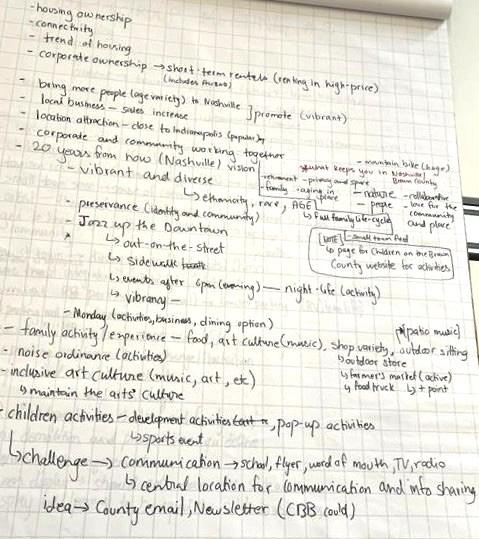 - housing ownership
- connectivity
- trend of housing
- corporate ownership → short-term rentals (renting in high-price)
(includes Airbnb)
- bring more people (age variety) to Nashville
- local business - sales increase ] promote (vibrant)
- location attraction - close to Indianapolis (popular)
- corporate and community working together
- 20 years from now (Nashville) vision
- vibrant and diverse
↳ ethnicity, race, AGE
- mountain bike (huge)
what keeps you in Nashville/
Brown County
- retirement - privacy and space
- family - aging in place
- nature
- people
- collaborative
- love for the community and place
↳ full family life-cycle
- preservance (identity and community)
- Jazz up the Downtown
↳ out-on-the-street
↳ sidewalk
↳ events after 6pm (evening) — night-life (activity)
↳ vibrancy -
[NOTE] - small town feel
↳ page for Children on the Brown
County website for activities
- Monday (activities, business, dining option)
- family activity/experience - food, art culture (music), shop variety, outdoor sitting
(patio music)
↳ outdoor store
↳ farmer's market (active)
↳ food truck ↳ + point
- noise ordinance (activities)
- inclusive art culture (music, art, etc)
↳ maintain the arts' culture
- children activities - development activities, pop-up activities
↳ sports event
↳ challenge → communication → school, flyer, word of mouth, TV, radio
↳ central location for communication and info sharing
idea → County email, Newsletter (CBB could)